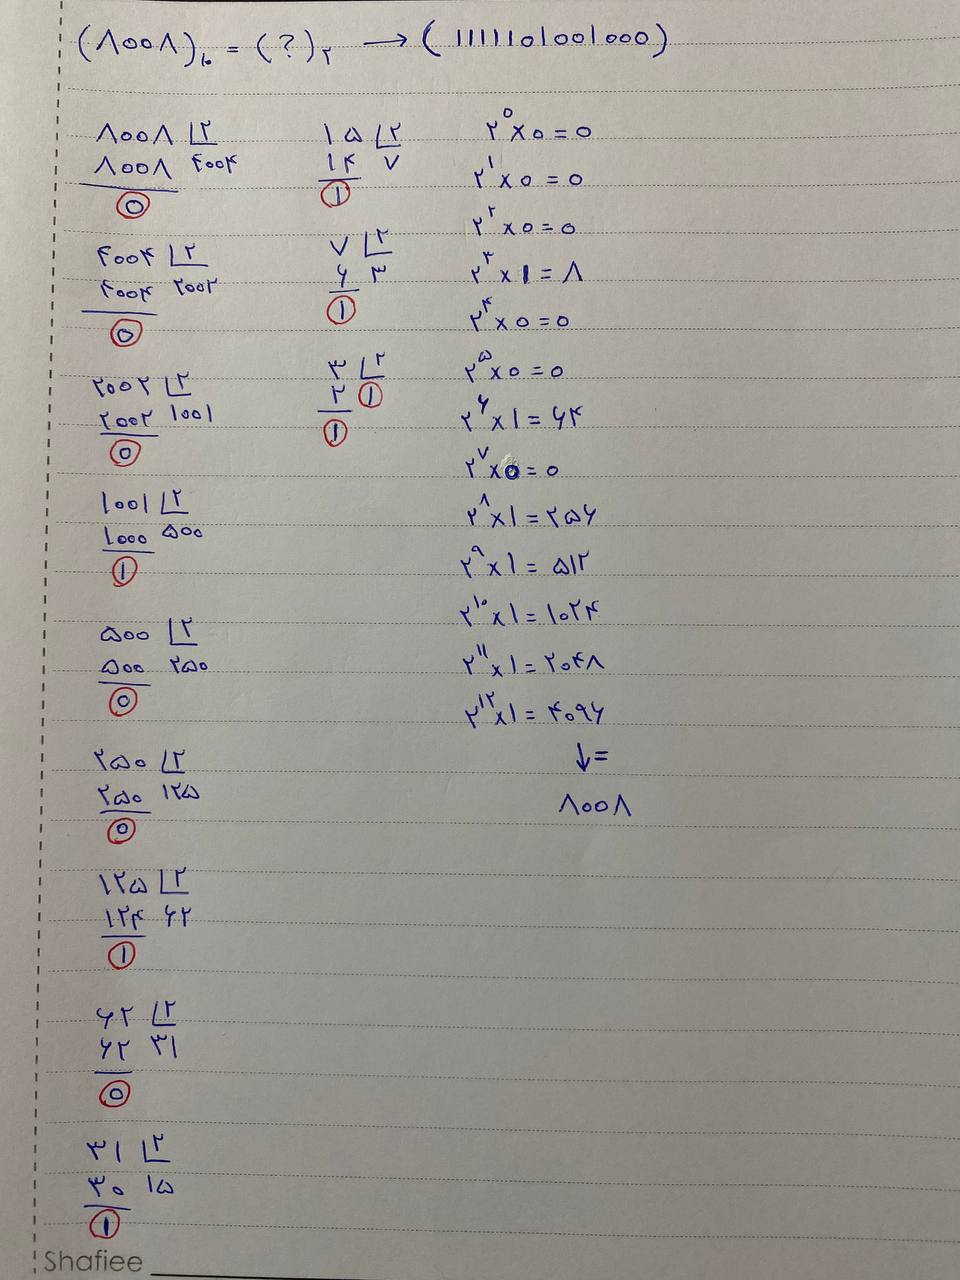 (۸۰۰۸)۱۰ = (?)۲ → (۱۱۱۱۱۰۱۰۰۱۰۰۰)
۸۰۰۸ ۲
۸۰۰۸ ۴۰۰۴
۰
۴۰۰۴ ۲
۴۰۰۴ ۲۰۰۲
۰
۲۰۰۲ ۲
۲۰۰۲ ۱۰۰۱
۰
۱۰۰۱ ۲
۱۰۰۰ ۵۰۰
۱
۵۰۰ ۲
۵۰۰ ۲۵۰
۰
۲۵۰ ۲
۲۵۰ ۱۲۵
۰
۱۲۵ ۲
۱۲۴ ۶۲
۱
۶۲ ۲
۶۲ ۳۱
۰
۳۱ ۲
۳۰ ۱۵
۱
۱۵ ۲
۱۴ ۷
۱
۷ ۲
۶ ۳
۱
۳ ۲
۲ ۱
۱
۲^۰ × ۰ = ۰
۲^۱ × ۰ = ۰
۲^۲ × ۰ = ۰
۲^۳ × ۱ = ۸
۲^۴ × ۰ = ۰
۲^۵ × ۰ = ۰
۲^۶ × ۱ = ۶۴
۲^۷ × ۰ = ۰
۲^۸ × ۱ = ۲۵۶
۲^۹ × ۱ = ۵۱۲
۲^۱۰ × ۱ = ۱۰۲۴
۲^۱۱ × ۱ = ۲۰۴۸
۲^۱۲ × ۱ = ۴۰۹۶
↓=
۸۰۰۸
Shafiee